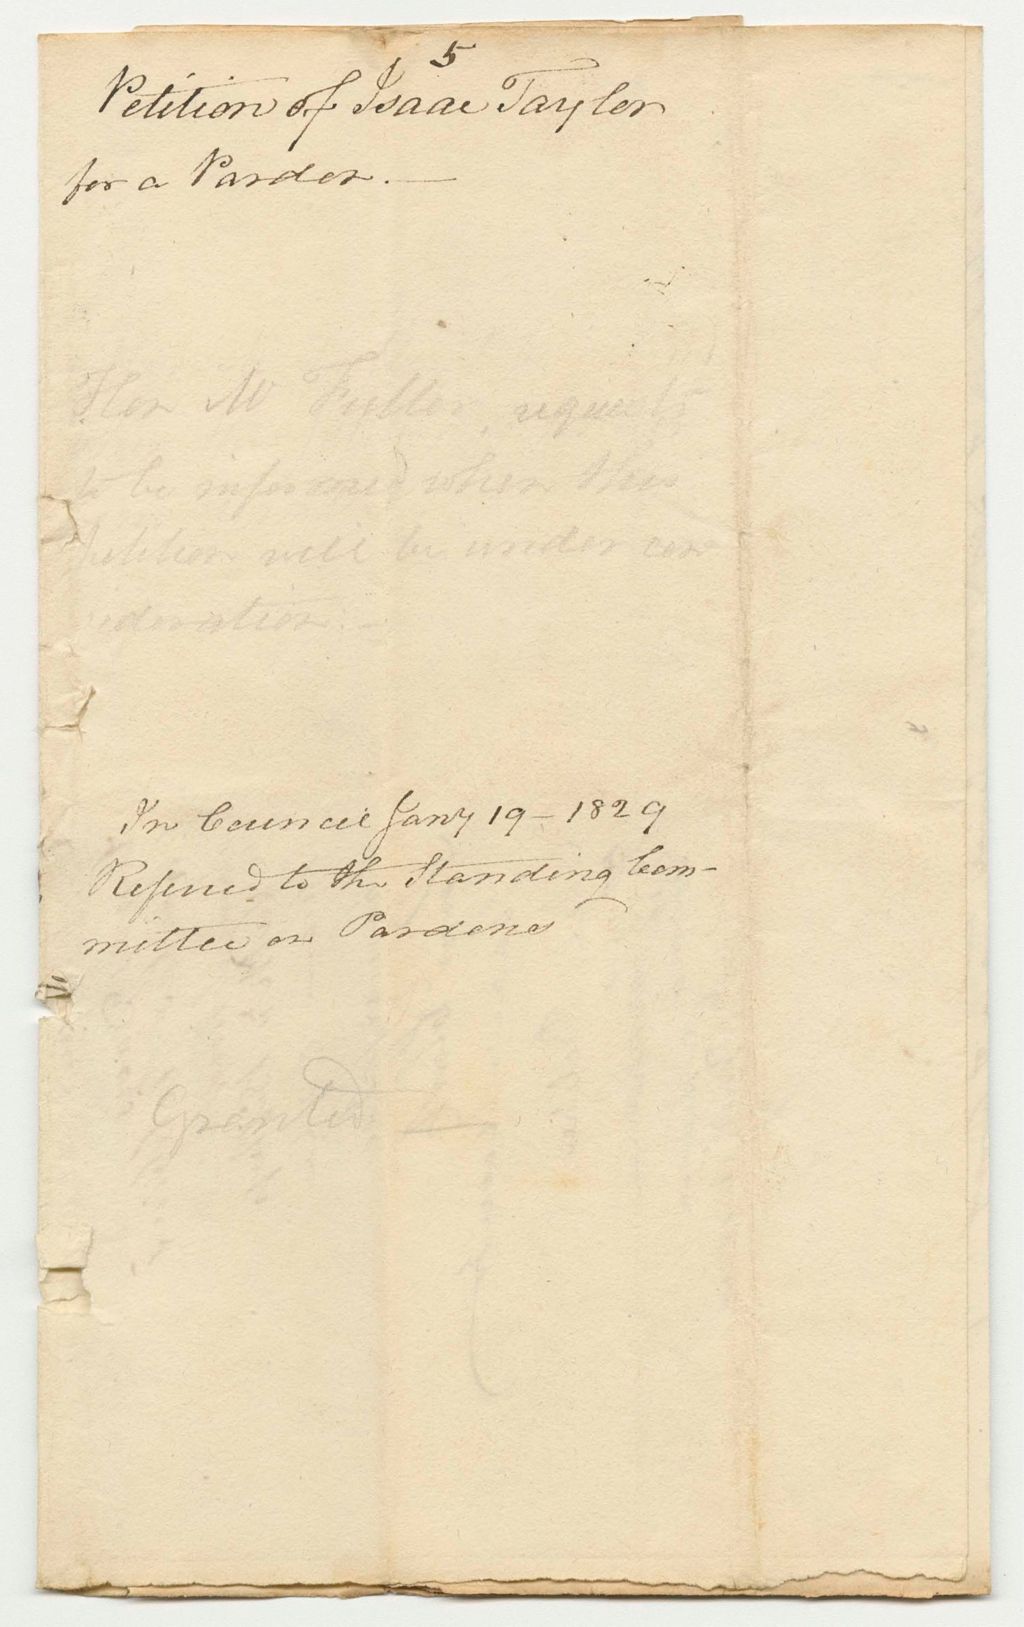 5
Petition of Isaac Taylor
for a Pardon. —
Hon Mr Fuller requests
to be informed when this
petition will be under con
sideration. —
In Council Jany 19 – 1829
Referred to the Standing Com-
mittee on Pardons
Granted